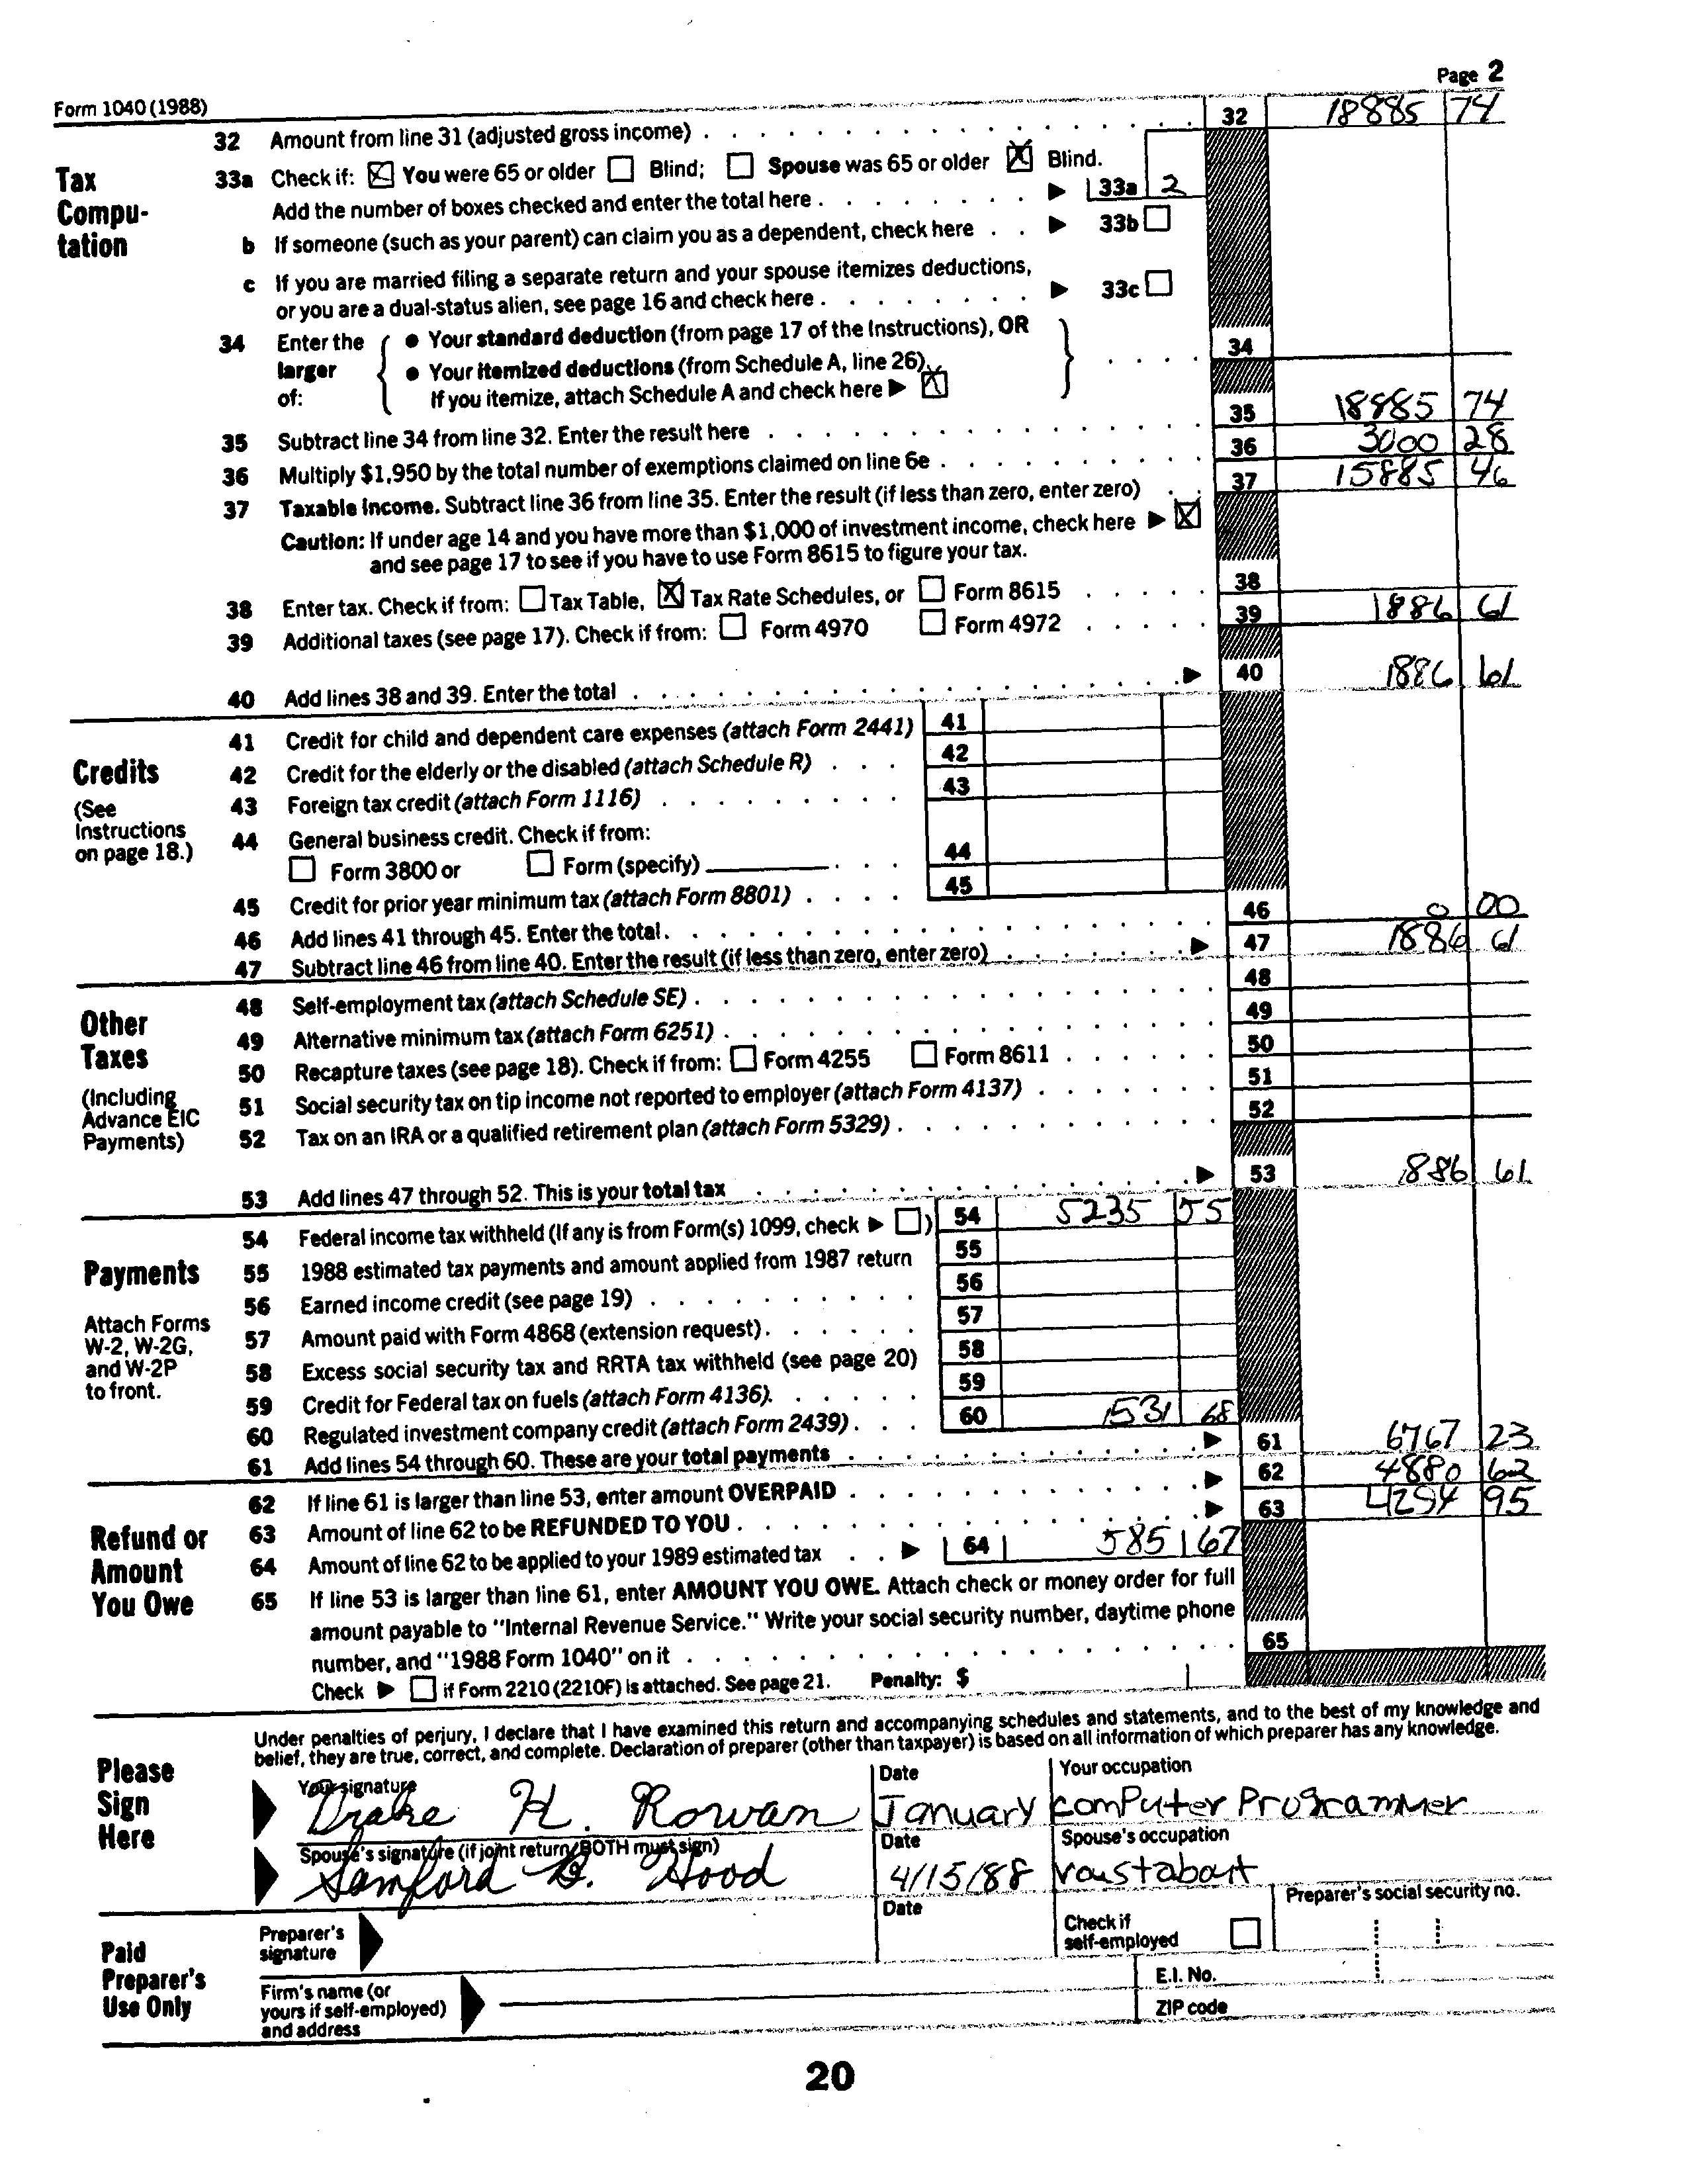 Page 2
Form 1040 (1988)
32 Amount from line 31 (adjusted gross income) . . . 32 18885 74
Tax Compu-tation
33a Check if: ☒ You were 65 or older ☐ Blind; ☐ Spouse was 65 or older ☒ Blind.
Add the number of boxes checked and enter the total here . . . ▶ 33a 2
b If someone (such as your parent) can claim you as a dependent, check here . . ▶ 33b ☐
c If you are married filing a separate return and your spouse itemizes deductions,
or you are a dual-status alien, see page 16 and check here . . . ▶ 33c ☐
34 Enter the larger of: { ● Your standard deduction (from page 17 of the Instructions), OR
● Your itemized deductions (from Schedule A, line 26).
If you itemize, attach Schedule A and check here ▶ ☒ } . . . . 34
35 Subtract line 34 from line 32. Enter the result here . . . 35 18885 74
36 Multiply $1,950 by the total number of exemptions claimed on line 6e . . . 36 3000 28
37 Taxable income. Subtract line 36 from line 35. Enter the result (if less than zero, enter zero) . . 37 15885 46
Caution: If under age 14 and you have more than $1,000 of investment income, check here ▶ ☒
and see page 17 to see if you have to use Form 8615 to figure your tax.
38 Enter tax. Check if from: ☐ Tax Table, ☒ Tax Rate Schedules, or ☐ Form 8615 . . . . . 38
39 Additional taxes (see page 17). Check if from: ☐ Form 4970 ☐ Form 4972 . . . . . 39 1886 61
40 Add lines 38 and 39. Enter the total . . . ▶ 40 1886 61
Credits
(See Instructions on page 18.)
41 Credit for child and dependent care expenses (attach Form 2441) 41
42 Credit for the elderly or the disabled (attach Schedule R) . . . 42
43 Foreign tax credit (attach Form 1116) . . . 43
44 General business credit. Check if from:
☐ Form 3800 or ☐ Form (specify) . . . 44
45 Credit for prior year minimum tax (attach Form 8801) . . . . 45
46 Add lines 41 through 45. Enter the total . . . 46 0 00
47 Subtract line 46 from line 40. Enter the result (if less than zero, enter zero) . . . ▶ 47 1886 61
Other Taxes
(Including Advance EIC Payments)
48 Self-employment tax (attach Schedule SE) . . . 48
49 Alternative minimum tax (attach Form 6251) . . . 49
50 Recapture taxes (see page 18). Check if from: ☐ Form 4255 ☐ Form 8611 . . . 50
51 Social security tax on tip income not reported to employer (attach Form 4137) . . . 51
52 Tax on an IRA or a qualified retirement plan (attach Form 5329) . . . 52
53 Add lines 47 through 52. This is your total tax . . . ▶ 53 1886 61
Payments
Attach Forms W-2, W-2G, and W-2P to front.
54 Federal income tax withheld (If any is from Form(s) 1099, check ▶ ☐) 54 5235 55
55 1988 estimated tax payments and amount applied from 1987 return 55
56 Earned income credit (see page 19) . . . 56
57 Amount paid with Form 4868 (extension request) . . . 57
58 Excess social security tax and RRTA tax withheld (see page 20) 58
59 Credit for Federal tax on fuels (attach Form 4136) . . . 59
60 Regulated investment company credit (attach Form 2439) . . . 60 1531 68
61 Add lines 54 through 60. These are your total payments . . . ▶ 61 6767 23
Refund or Amount You Owe
62 If line 61 is larger than line 53, enter amount OVERPAID . . . ▶ 62 4880 62
63 Amount of line 62 to be REFUNDED TO YOU . . . ▶ 63 4294 95
64 Amount of line 62 to be applied to your 1989 estimated tax . . ▶ 64 585 67
65 If line 53 is larger than line 61, enter AMOUNT YOU OWE. Attach check or money order for full
amount payable to "Internal Revenue Service." Write your social security number, daytime phone
number, and "1988 Form 1040" on it . . . 65
Check ▶ ☐ if Form 2210 (2210F) is attached. See page 21. Penalty: $
Please Sign Here
Under penalties of perjury, I declare that I have examined this return and accompanying schedules and statements, and to the best of my knowledge and
belief, they are true, correct, and complete. Declaration of preparer (other than taxpayer) is based on all information of which preparer has any knowledge.
Your signature Date Your occupation
Drake H. Rowan January computer Programmer
Spouse's signature (if joint return, BOTH must sign) Date Spouse's occupation
Samford B. Hood 4/15/88 roustabout
Paid Preparer's Use Only
Preparer's signature Date Check if self-employed ☐ Preparer's social security no.
Firm's name (or yours if self-employed) and address E.I. No.
ZIP code
20